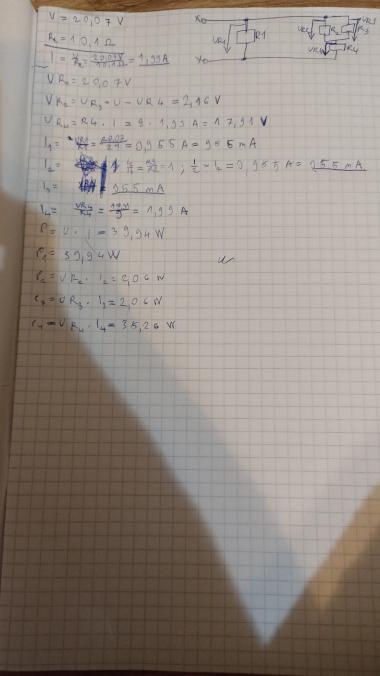 U = 20,07V
Rc = 10,1Ω
I = U/Rc = 20,07V/10,1Ω = 1,99A
UR1 = 20,07V
UR2 = UR3 = U - UR4 = 2,16V
UR4 = R4 · I = 9 · 1,99A = 17,91V
I1 = UR1/R1 = 20,07/21 = 0,955A = 955 mA
I2 = = 1; = I2 = 0,955A = 955 mA
I3 = 955 mA
I4 = UR4/R4 = /9 = 1,99 A
P = U · I = 39,94W
P1 = 39,94W
P2 = UR2 · I2 = 2,06 W
P3 = UR3 · I3 = 2,06W
P4 = UR4 · I4 = 35,26 W
X
Y
UR1
R1
R2
UR3
R3
R4